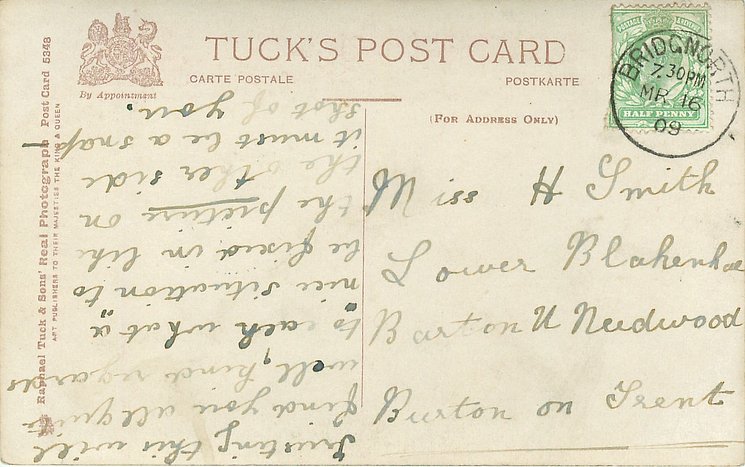 TUCK'S POST CARD
CARTE POSTALE
POSTKARTE
By Appointment
(FOR ADDRESS ONLY)
POSTAGE REVENUE
HALF PENNY
BRIDGNORTH
7.30PM
MR 16
09
Miss H Smith
Lower Blakenhall
Barton U Needwood
Burton on Trent
Trusting this will
find you all quite
well, kind regards
to each what a
nice situation to
be fixed in like
the picture on
the other side
it must be a snap
shot of you.
Raphael Tuck & Sons' Real Photograph Post Card 5348
ART PUBLISHERS TO THEIR MAJESTIES THE KING & QUEEN